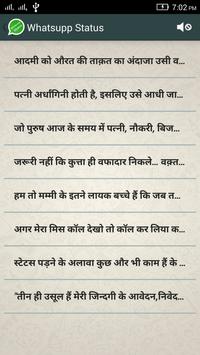 7:02 PM
Whatsupp Status
आदमी को औरत की ताक़त का अंदाजा उसी व...
पत्नी अर्धांगिनी होती है, इसलिए उसे आधी जा...
जो पुरुष आज के समय में पत्नी, नौकरी, बिज...
जरूरी नहीं कि कुत्ता ही वफादार निकले... वक़्त...
हम तो मम्मी के इतने लायक बच्चे हैं कि जब त...
अगर मेरा मिस कॉल देखो तो कॉल कर लिया क...
स्टेटस पड़ने के अलावा कुछ और भी काम हैं के ...
"तीन ही उसूल हैं मेरी जिन्दगी के आवेदन,निवेद...